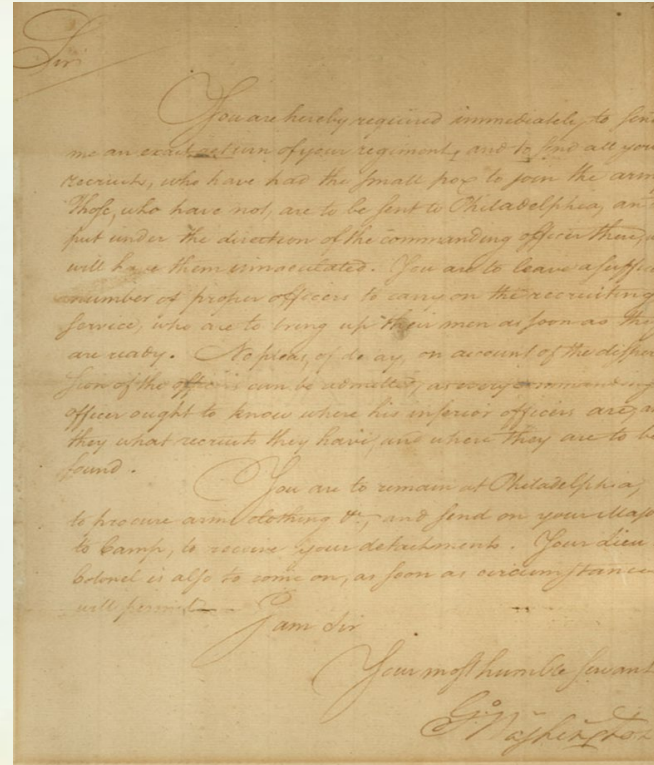 Sir
You are hereby required immediately to send
me an exact return of your regiment, and to send all you
recruits, who have had the small pox to join the arm
Those, who have not, are to be sent to Philadelphia, an
put under the direction of the commanding officer there, w
will have them innoculated. You are to leave a suffic
number of proper officers to carry on the recruiting
service, who are to bring up their men as soon as they
are ready. No pleas, of delay, on account of the disper
sion of the officers can be admitted, as every commanding
officer ought to know where his inferior officers are, a
they what recruits they have, and where they are to be
found.
You are to remain at Philadelphia,
to procure arms, clothing &c, and send on your Majo
to Camp, to receive your detachments. Your Lieu
Colonel is also to come on, as soon as circumstance
will permit
I am Sir
Your most humble servant
Go Washington